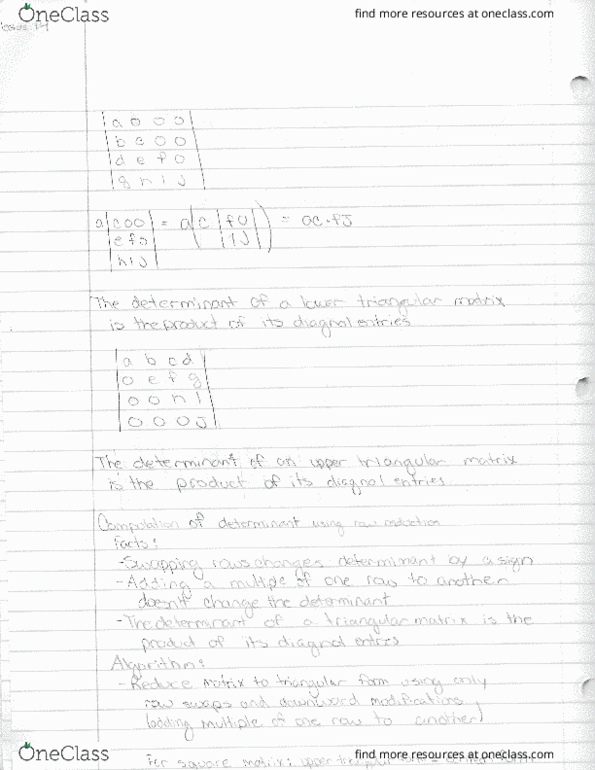 OneClass
find more resources at oneclass.com
|a 0 0 0|
|b c 0 0|
|d e f 0|
|g h i j|
a |c 0 0| = a(c |f 0|) = ac·fj
|e f 0| |i j|
|h i j|
The determinant of a lower triangular matrix
is the product of its diagnal entries
|a b c d|
|0 e f g|
|0 0 h i|
|0 0 0 j|
The determinant of an upper triangular matrix
is the product of its diagnal entries
Computation of determinant using row reduction
Facts:
-Swapping rows changes determinant by a sign
-Adding a multiple of one row to another
doesn't change the determinant
-The determinant of a triangular matrix is the
product of its diagnal entries
Algorithm:
-Reduce matrix to triangular form using only
row swaps and downward modifications
(adding multiple of one row to another)
For square matrix: upper triangular
OneClass
find more resources at oneclass.com